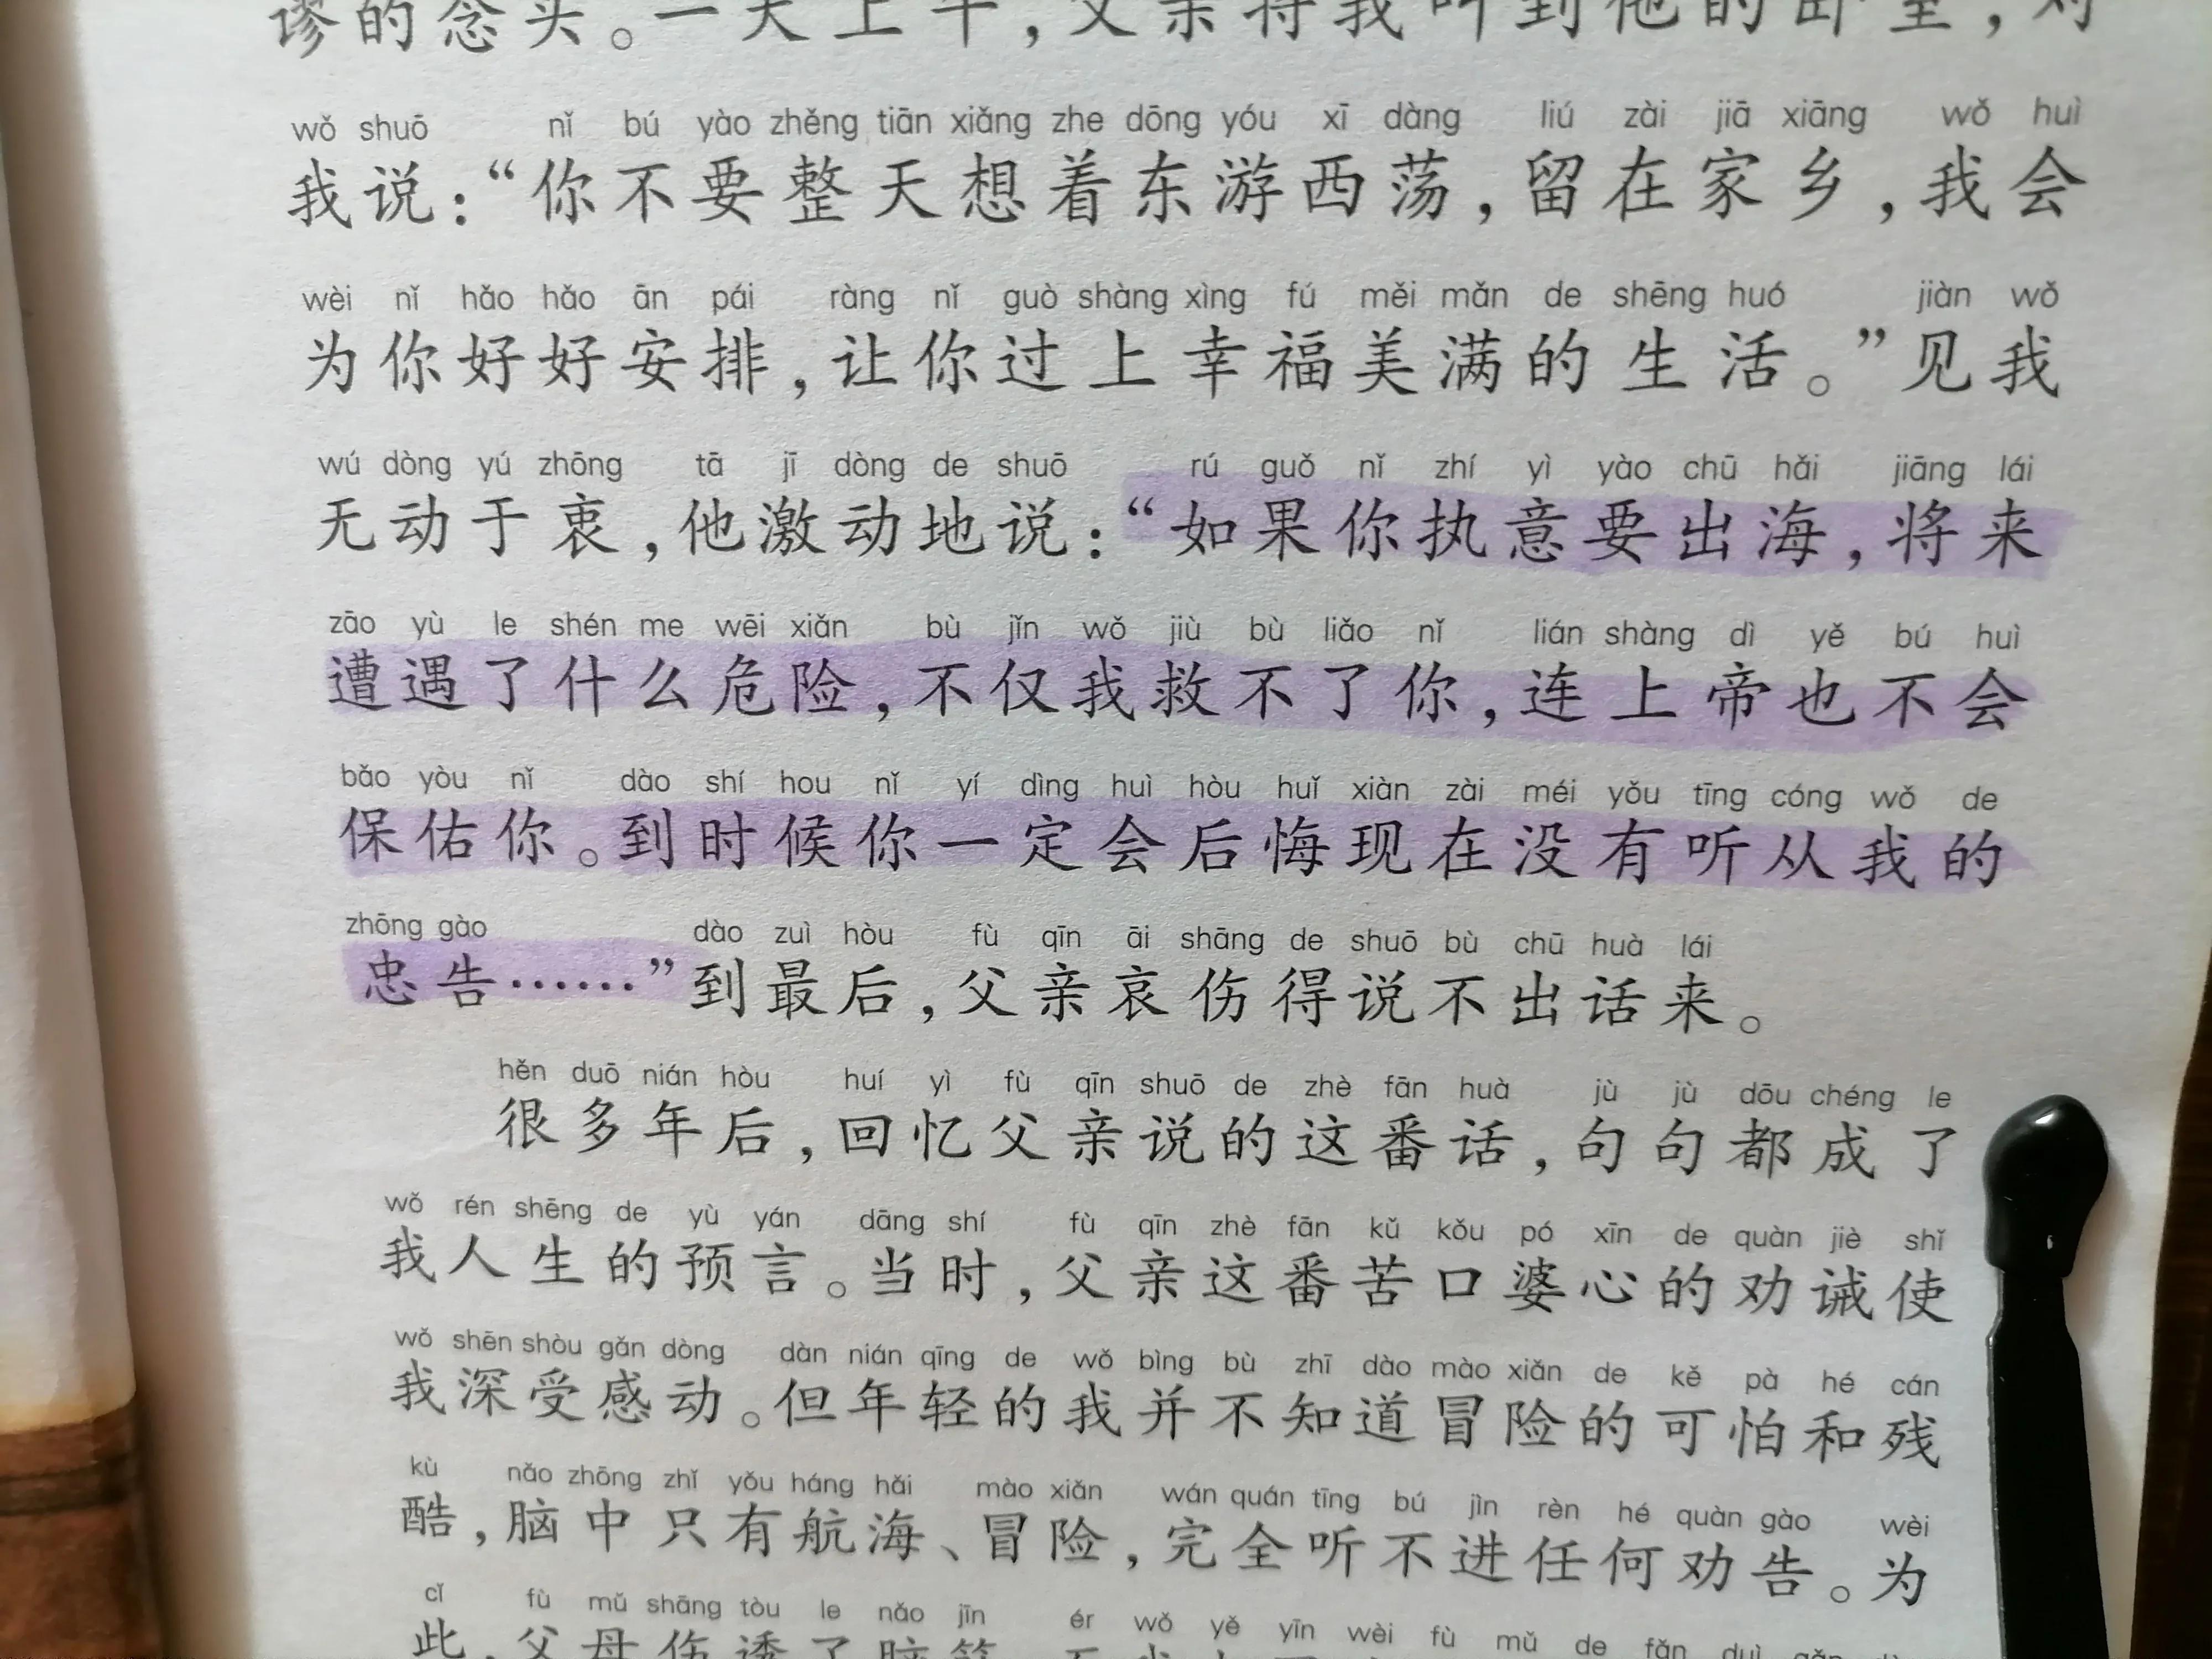 谬的念头。一天上午,父亲将我叫到他的卧室,对
wǒ shuō nǐ bú yào zhěng tiān xiǎng zhe dōng yóu xī dàng liú zài jiā xiāng wǒ huì
我说:“你不要整天想着东游西荡,留在家乡,我会
wèi nǐ hǎo hǎo ān pái ràng nǐ guò shàng xìng fú měi mǎn de shēng huó jiàn wǒ
为你好好安排,让你过上幸福美满的生活。”见我
wú dòng yú zhōng tā jī dòng de shuō rú guǒ nǐ zhí yì yào chū hǎi jiāng lái
无动于衷,他激动地说:“如果你执意要出海,将来
zāo yù le shén me wēi xiǎn bù jǐn wǒ jiù bù liǎo nǐ lián shàng dì yě bú huì
遭遇了什么危险,不仅我救不了你,连上帝也不会
bǎo yòu nǐ dào shí hou nǐ yí dìng huì hòu huǐ xiàn zài méi yǒu tīng cóng wǒ de
保佑你。到时候你一定会后悔现在没有听从我的
zhōng gào dào zuì hòu fù qīn āi shāng de shuō bù chū huà lái
忠告……”到最后,父亲哀伤得说不出话来。
hěn duō nián hòu huí yì fù qīn shuō de zhè fān huà jù jù dōu chéng le
很多年后,回忆父亲说的这番话,句句都成了
wǒ rén shēng de yù yán dāng shí fù qīn zhè fān kǔ kǒu pó xīn de quàn jiè shǐ
我人生的预言。当时,父亲这番苦口婆心的劝诫使
wǒ shēn shòu gǎn dòng dàn nián qīng de wǒ bìng bù zhī dào mào xiǎn de kě pà hé cán
我深受感动。但年轻的我并不知道冒险的可怕和残
kù nǎo zhōng zhǐ yǒu háng hǎi mào xiǎn wán quán tīng bú jìn rèn hé quàn gào wèi
酷,脑中只有航海、冒险,完全听不进任何劝告。为
cǐ fù mǔ shāng tòu le nǎo jīn ér wǒ yě yīn wèi fù mǔ de fǎn duì
此,父母伤透了脑筋